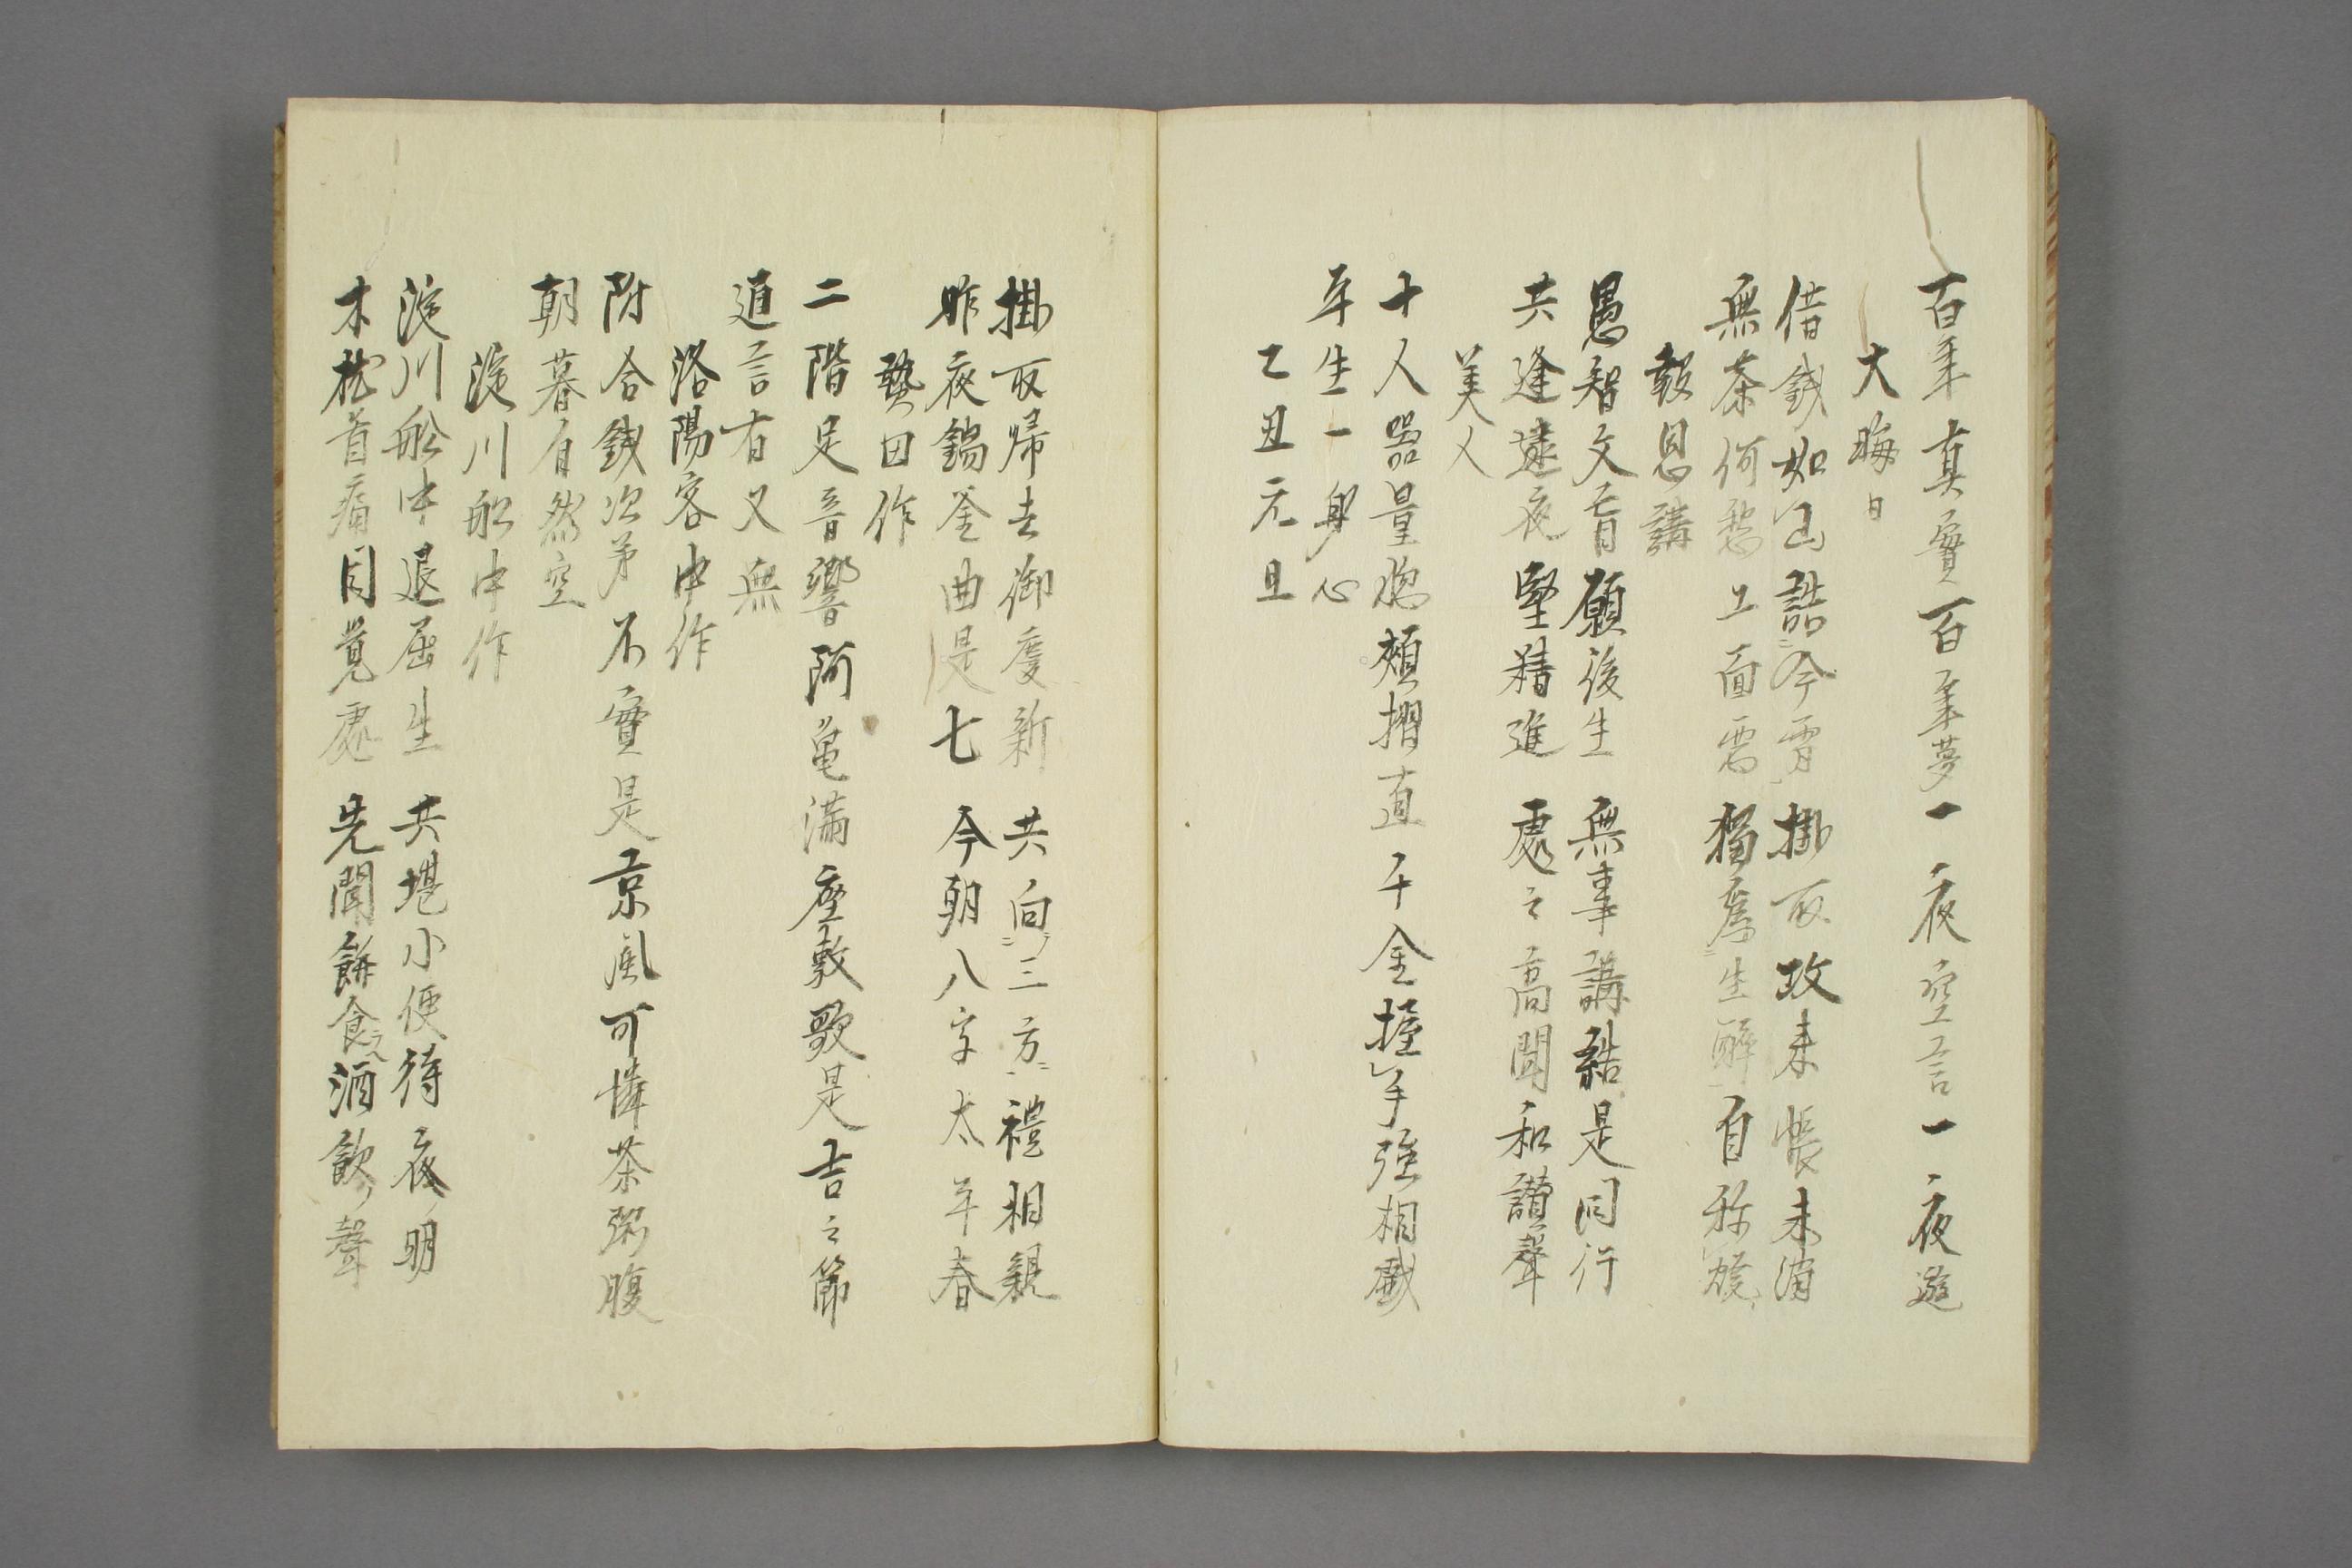 百年真實百年夢一夜空言一夜遊
大晦日
借錢如山詰今宵掛取攻来帳未消
無茶何愁工面悪獨為生醉自称
報恩講
愚智文盲願後生無事講結是同行
共逢逮夜堅精進處之高聞和讃聲
美人
十人器量惚頬摺直千金握手強相戯
年生一身心
乙丑元旦
掛取帰去御慶新共向三方禮相親
昨夜鍋釜曲是七今朝八字太年春
藝田作
二階足音響阿亀滿座敷歌是吉之節
道言有又無
洛陽客中作
附合錢次第不實是京風可憐茶粥腹
朝暮自然空
淀川船中作
淀川船中退屈生共堪小便待夜明
木枕首痛目覚處先聞餅食ラヘ酒飲ノ聲